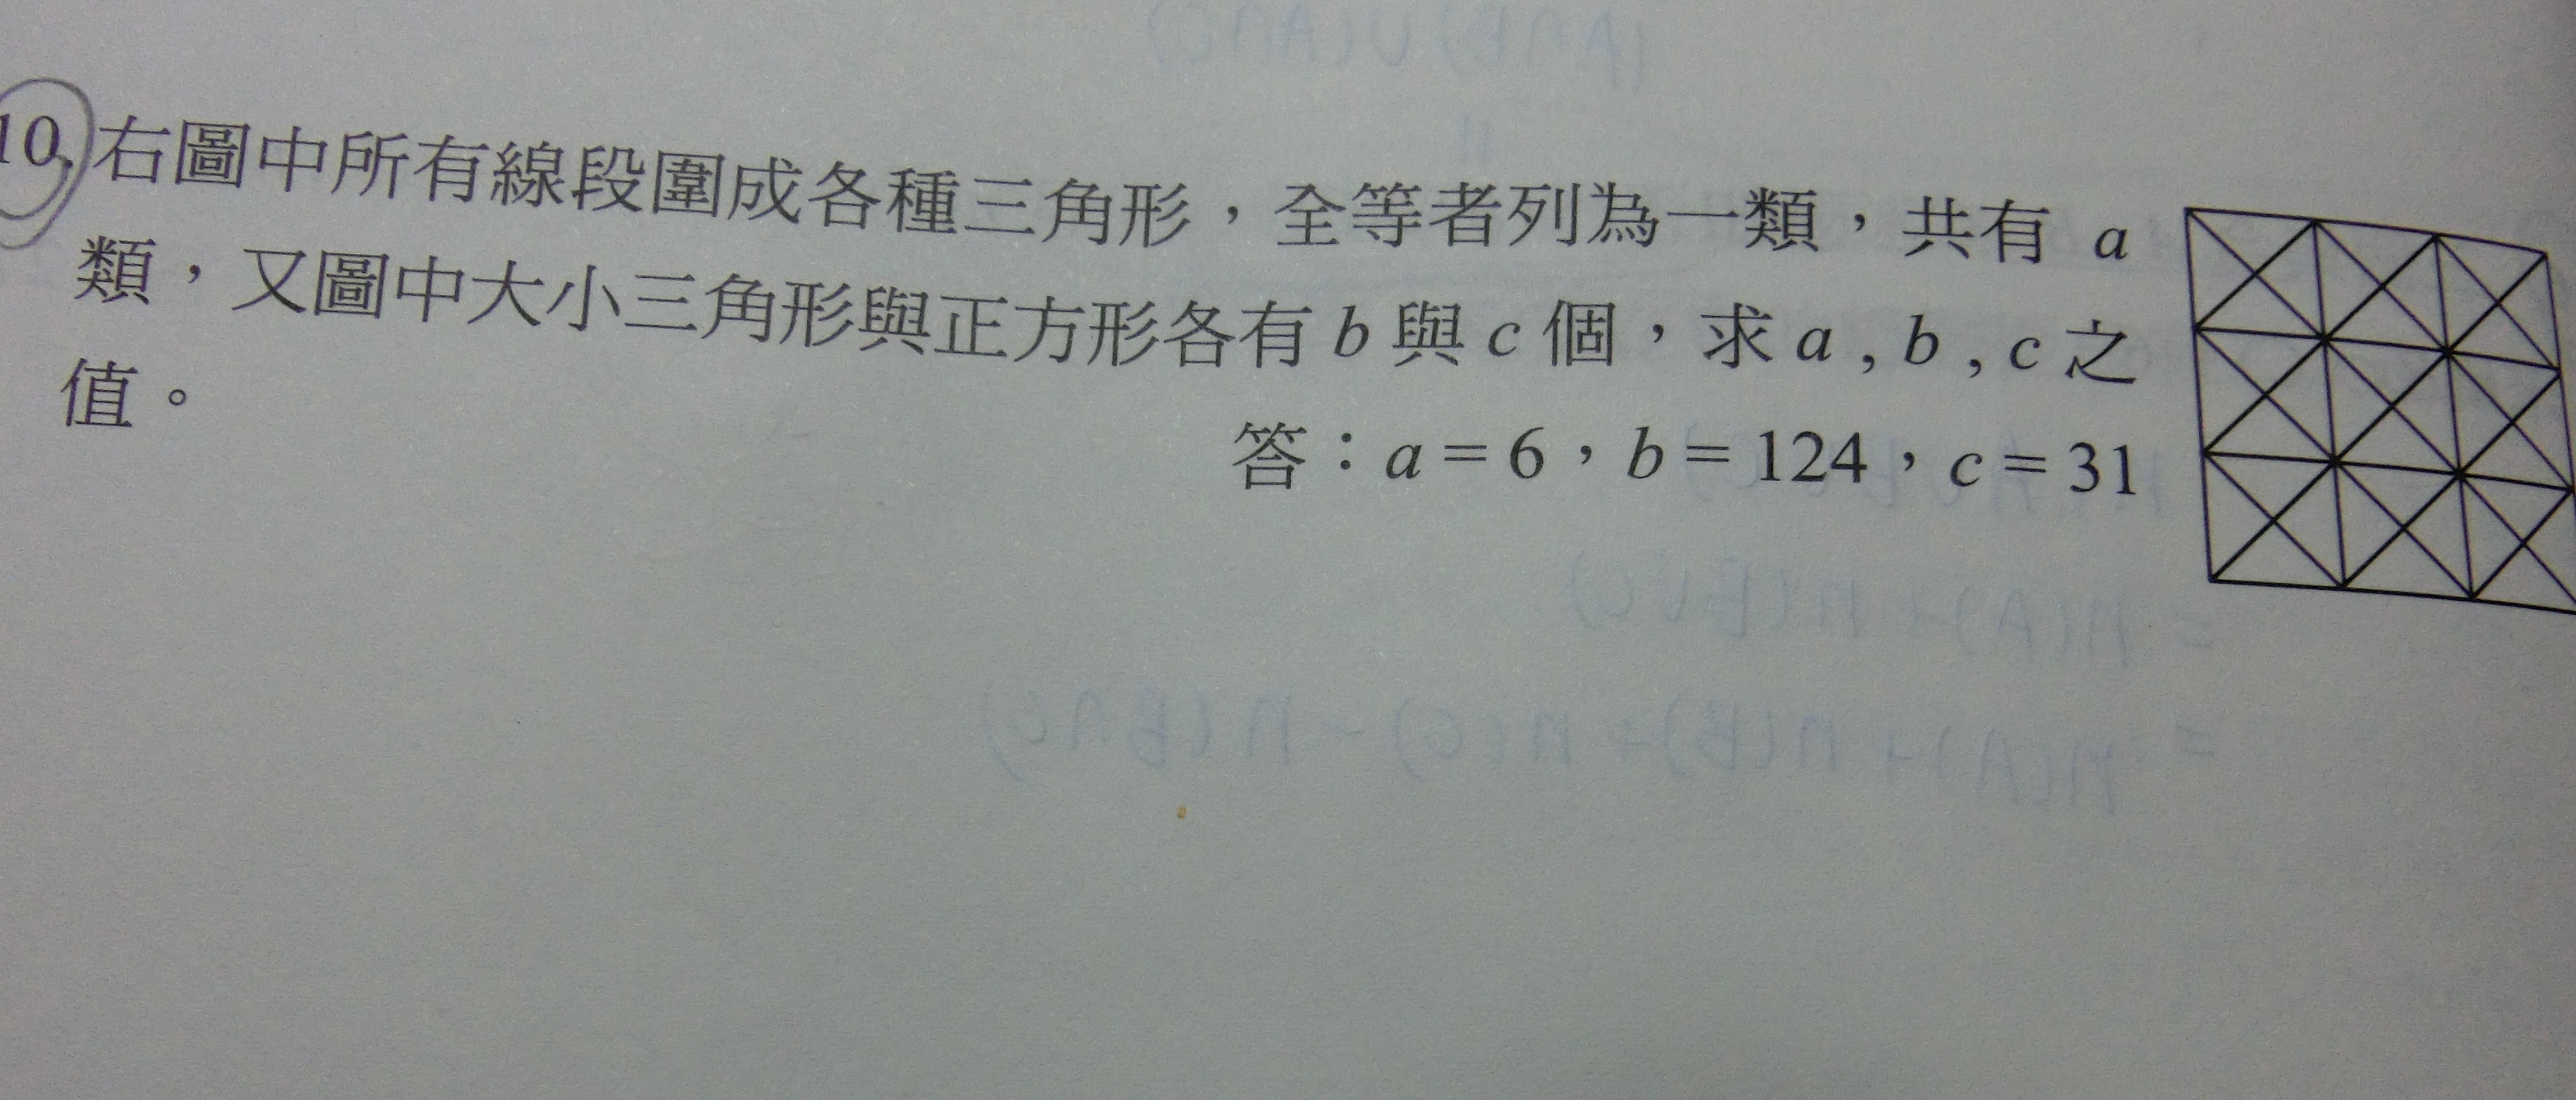 10. 右圖中所有線段圍成各種三角形，全等者列為一類，共有 a
類，又圖中大小三角形與正方形各有 b 與 c 個，求 a , b , c 之
值。
答：a = 6，b = 124，c = 31